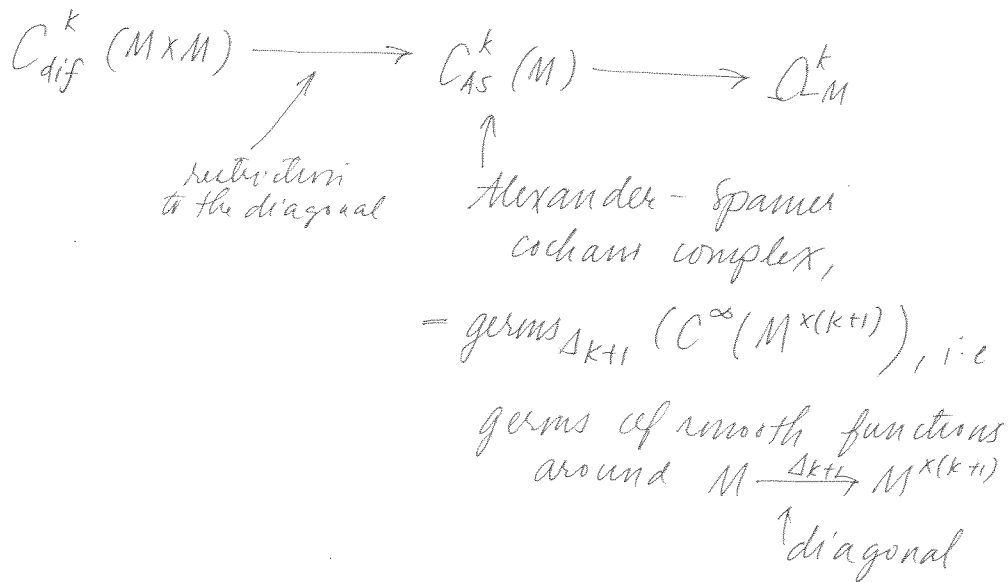 C^k_{dif} (M×M) ⟶ C^k_{AS} (M) ⟶ Ω^k_M
restriction
to the diagonal
Alexander - Spanier
cochain complex,
= germs_{Δ_{k+1}} (C^∞(M^{×(k+1)}), i.e
germs of smooth functions
around M \xrightarrow{Δ_{k+1}} M^{×(k+1)}
diagonal